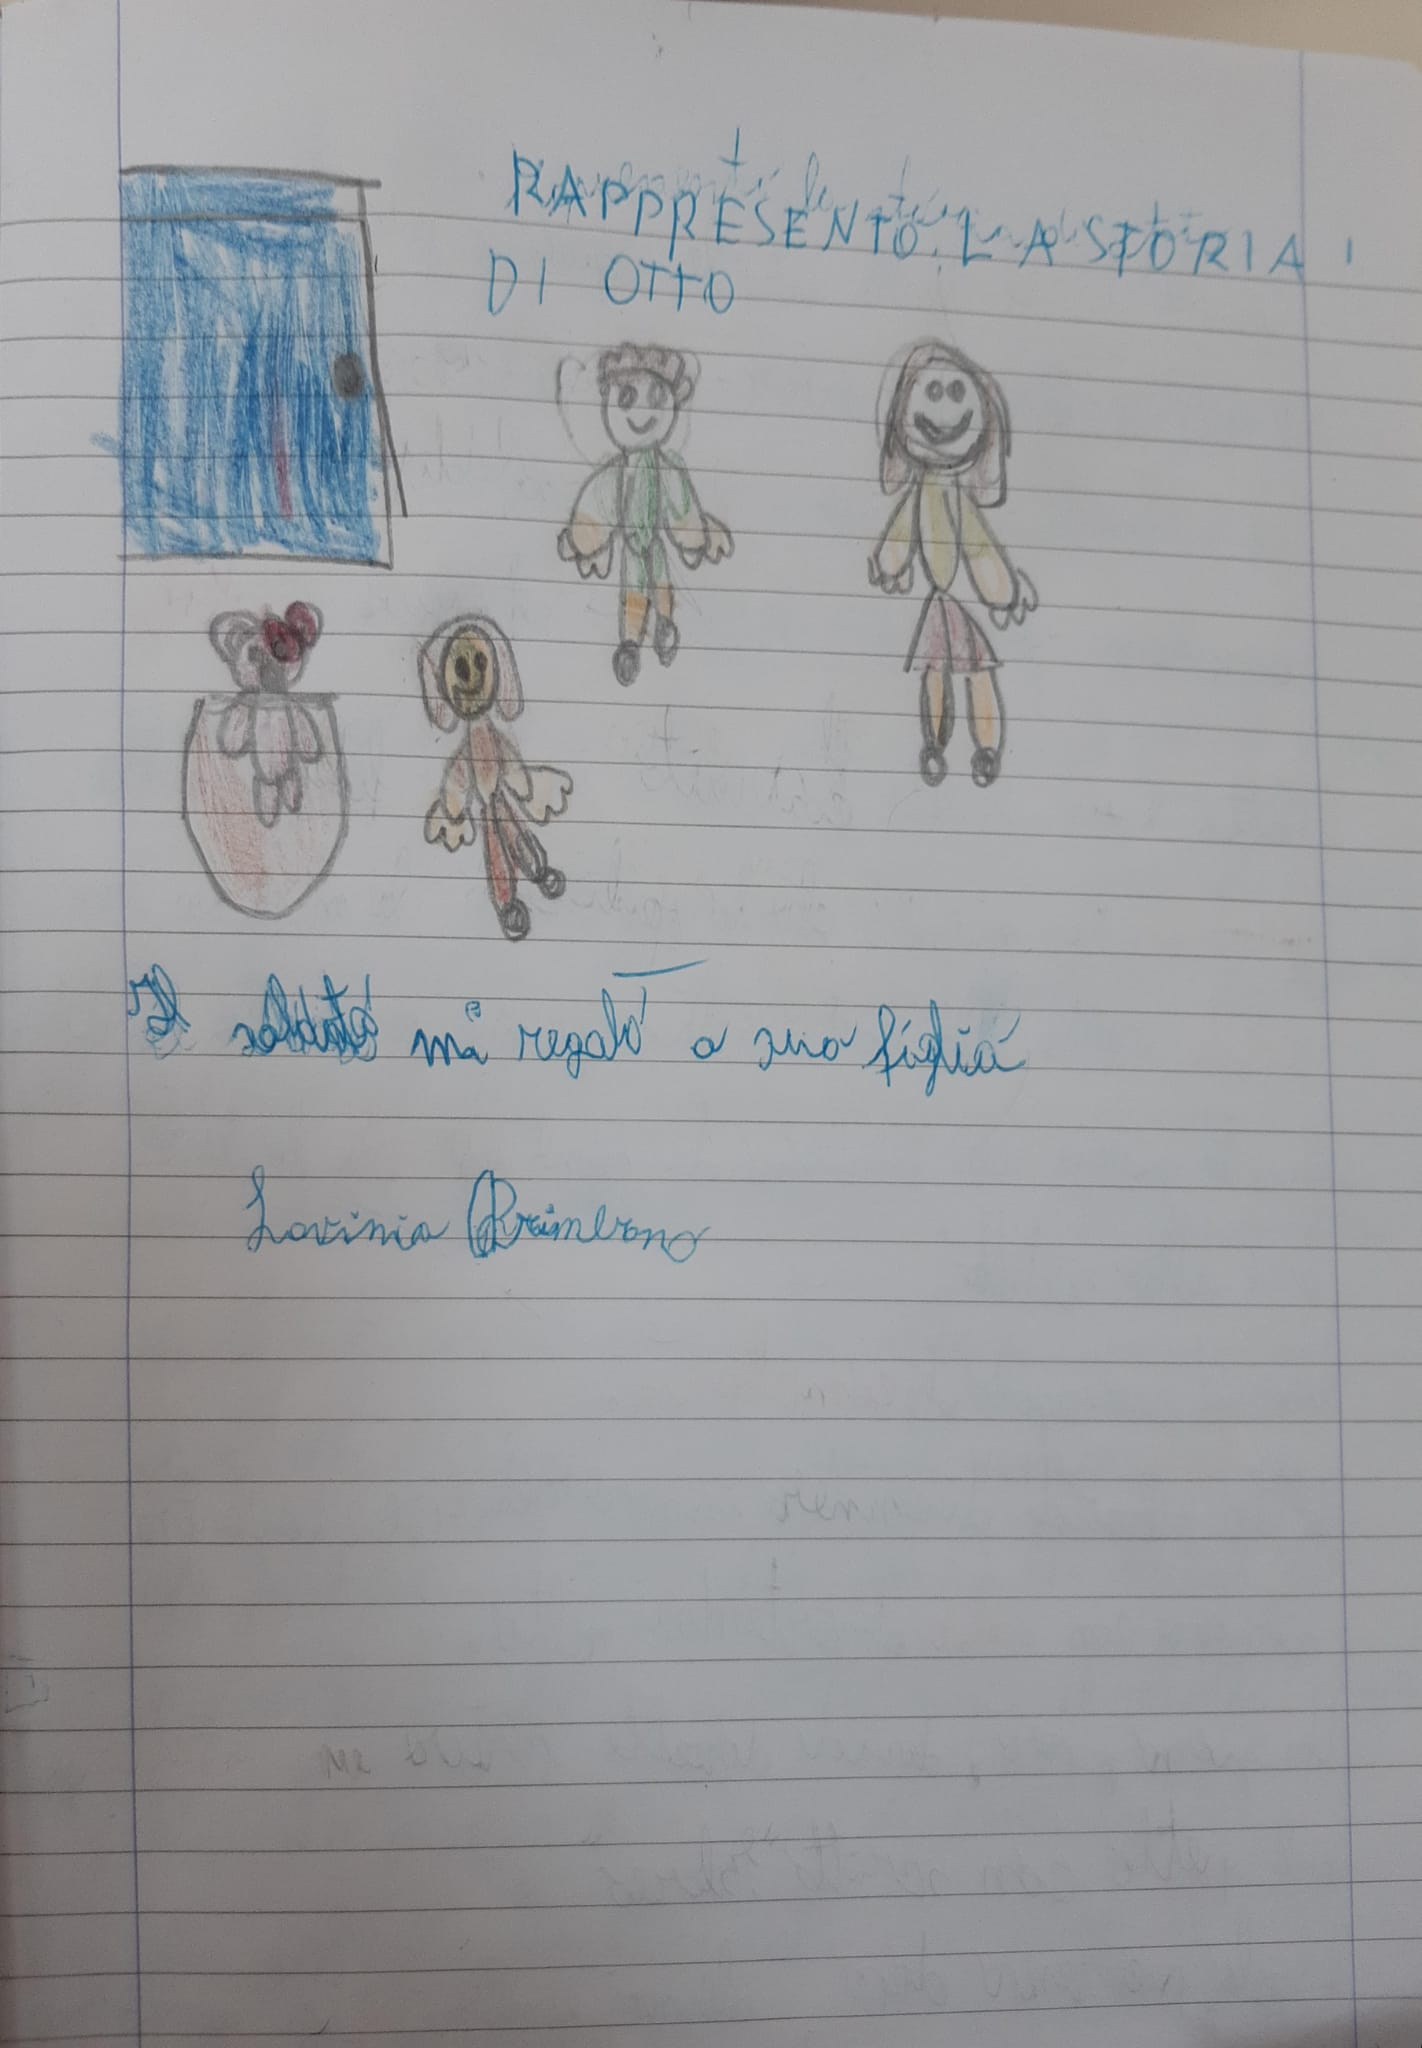 RAPPRESENTO LA STORIA
DI OTTO
Il soldato mi regalò a sua figlia
Lavinia